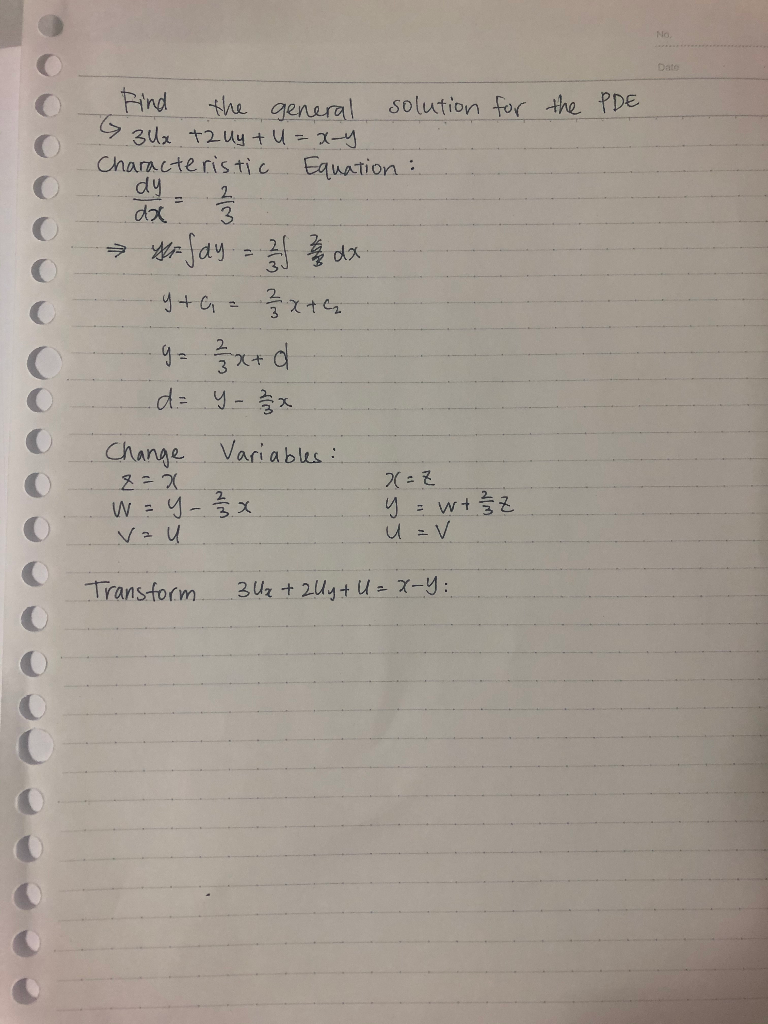 No.
Date
Find the general solution for the PDE
↳ 3Ux + 2Uy + U = x-y
Characteristic Equation:
dy/dx = 2/3
⇒ ∫dy = 2/3 ∫ dx
y + c₁ = 2/3 x + c₂
y = 2/3 x + d
d = y - 2/3 x
Change Variables:
z = x x = z
w = y - 2/3 x y = w + 2/3 z
v = u u = v
Transform 3Ux + 2Uy + U = x-y: